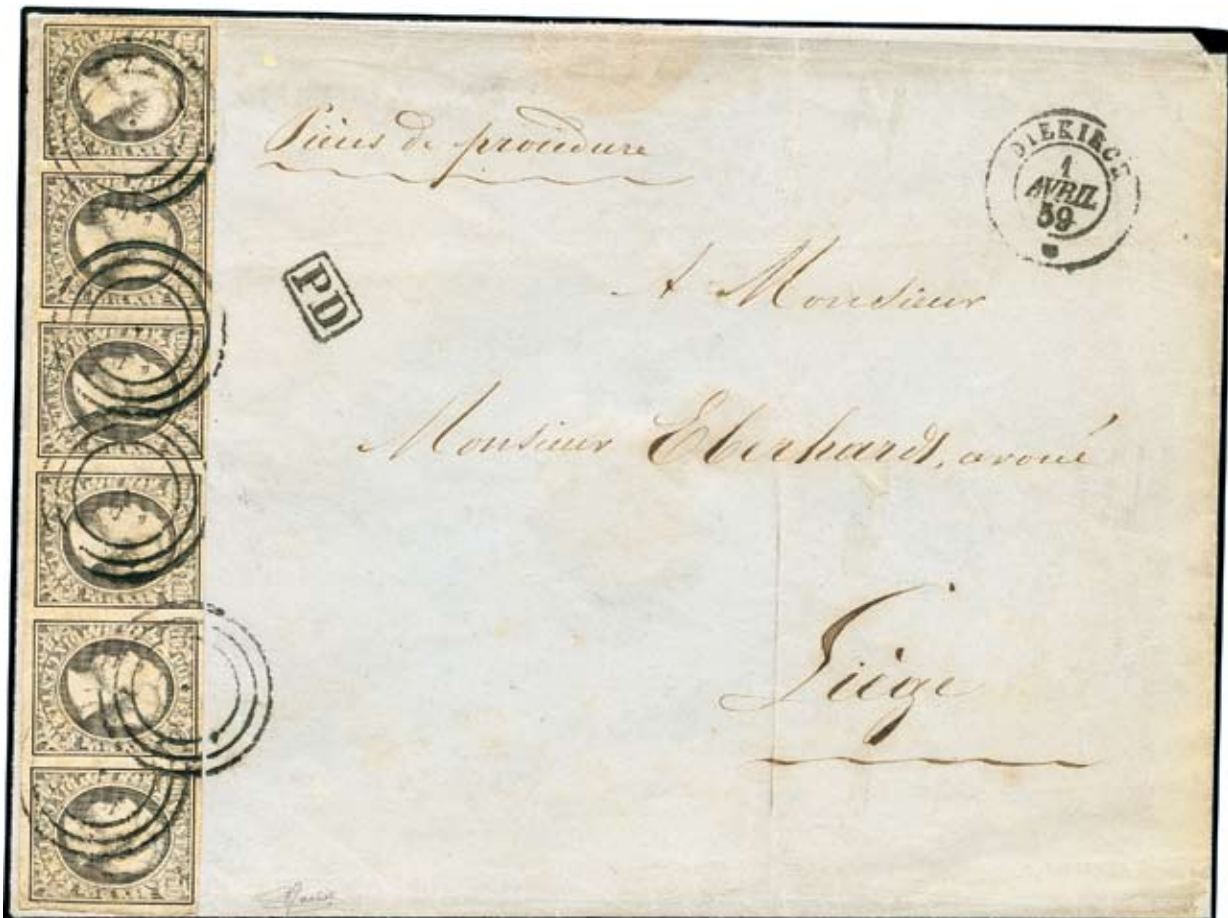 Pièces de procédure
DIEKIRCH
1
AVRIL
59
PD
A Monsieur
Monsieur Eberhardt, avoué
Liège